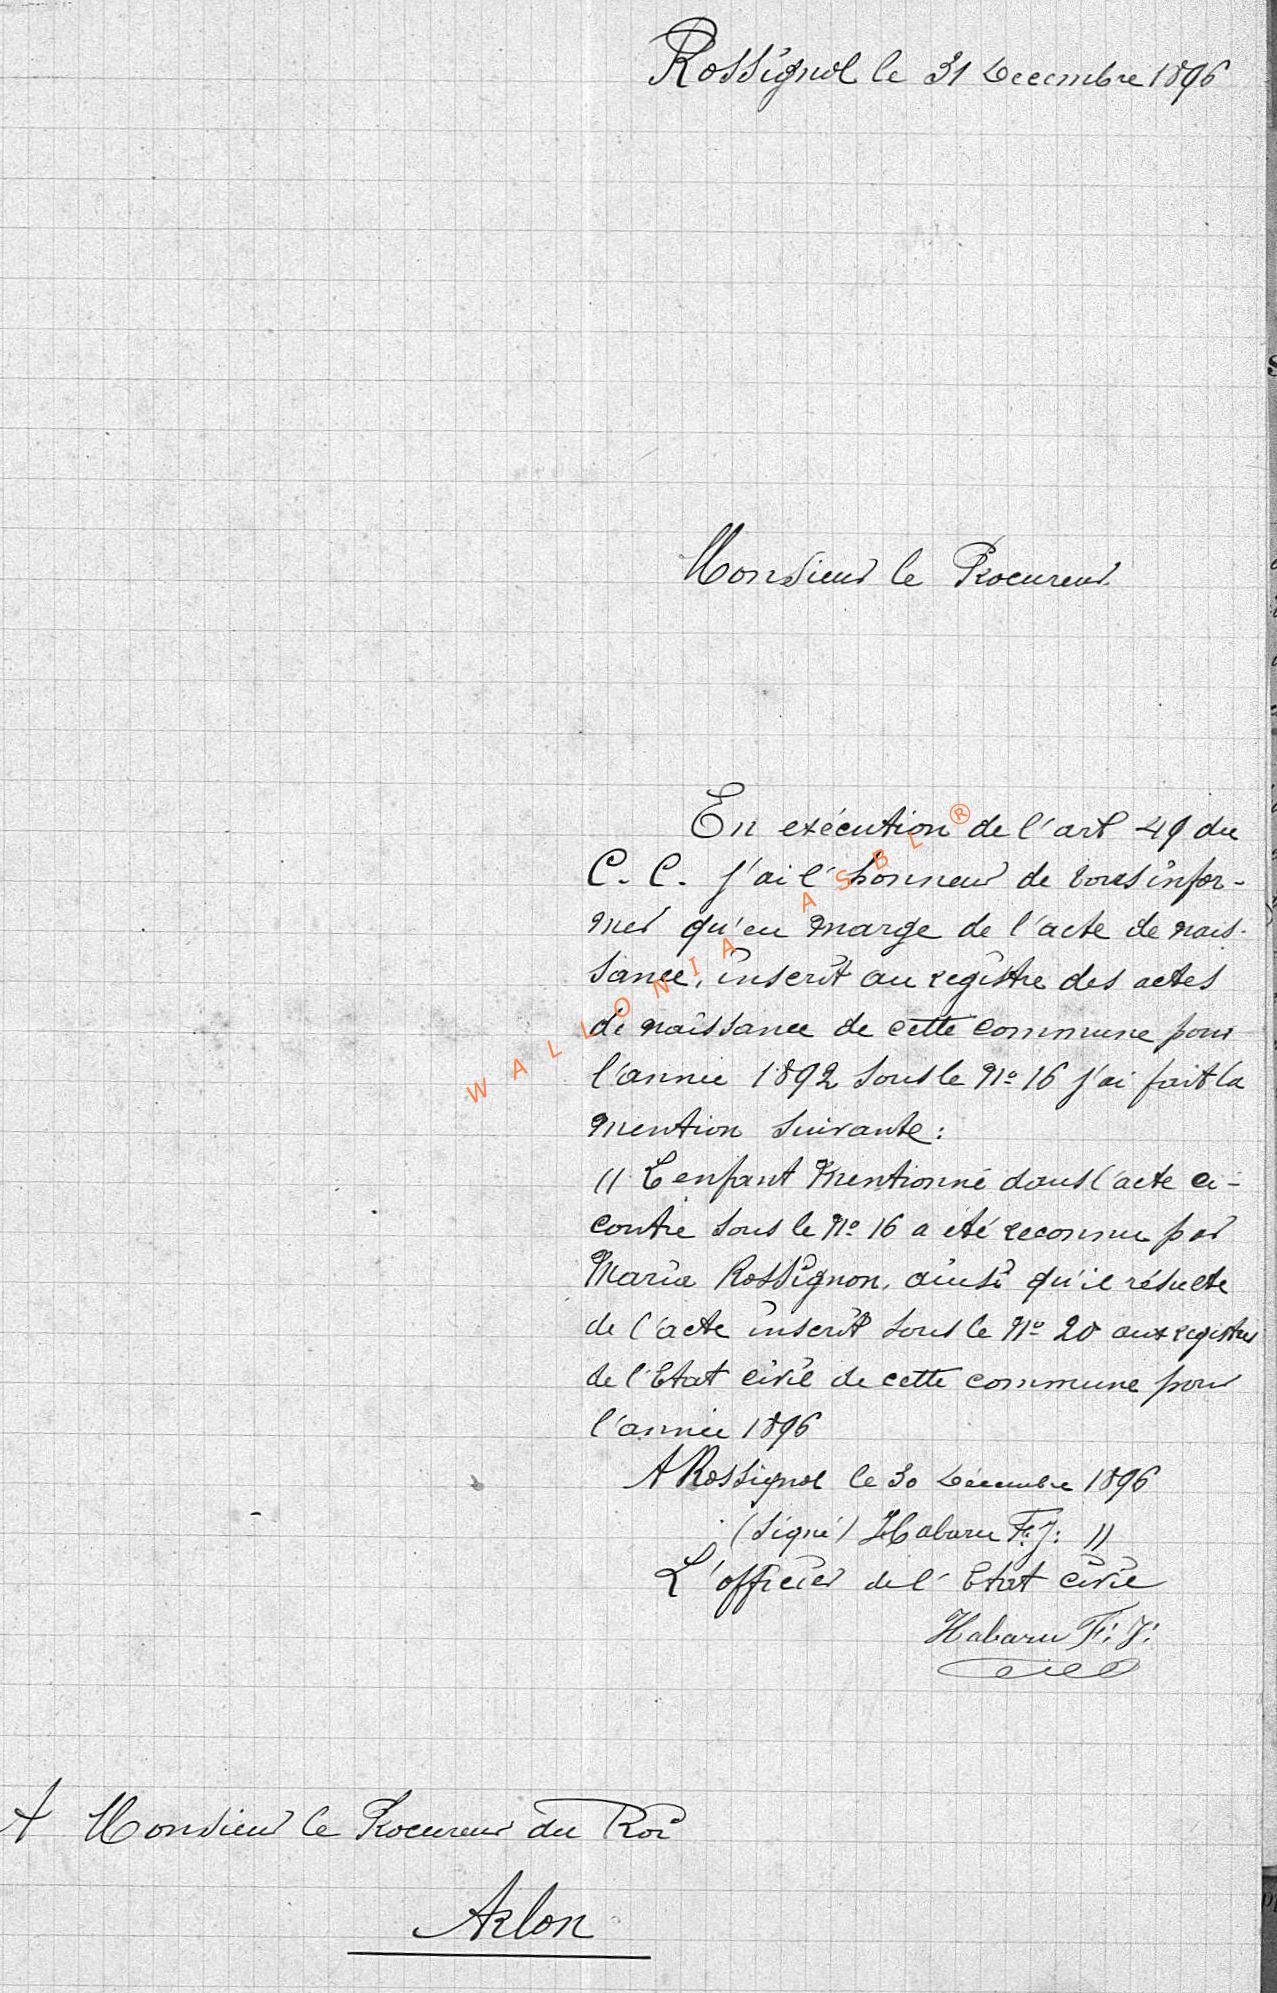 Rossignol le 31 Decembre 1896
Monsieur le Procureur
En exécution de l'art 49 du
C. C. j'ai l'honneur de vous infor-
mer qu'en marge de l'acte de nais-
sance, inscrit au registre des actes
de naissance de cette commune pour
l'année 1892 sous le No 16 j'ai fait la
mention suivante:
" L'enfant mentionné dans l'acte ci-
contre sous le No 16 a été reconnu par
Maria Rossignon, ainsi qu'il résulte
de l'acte inscrit sous le No 20 aux registres
de l'Etat civil de cette commune pour
l'année 1896
A Rossignol le 30 Décembre 1896
(signé) Habaru F. J. "
L'officier de l'Etat civil
Habaru F. J.
A Monsieur le Procureur du Roi
Arlon
WALLONIA ASBL ®